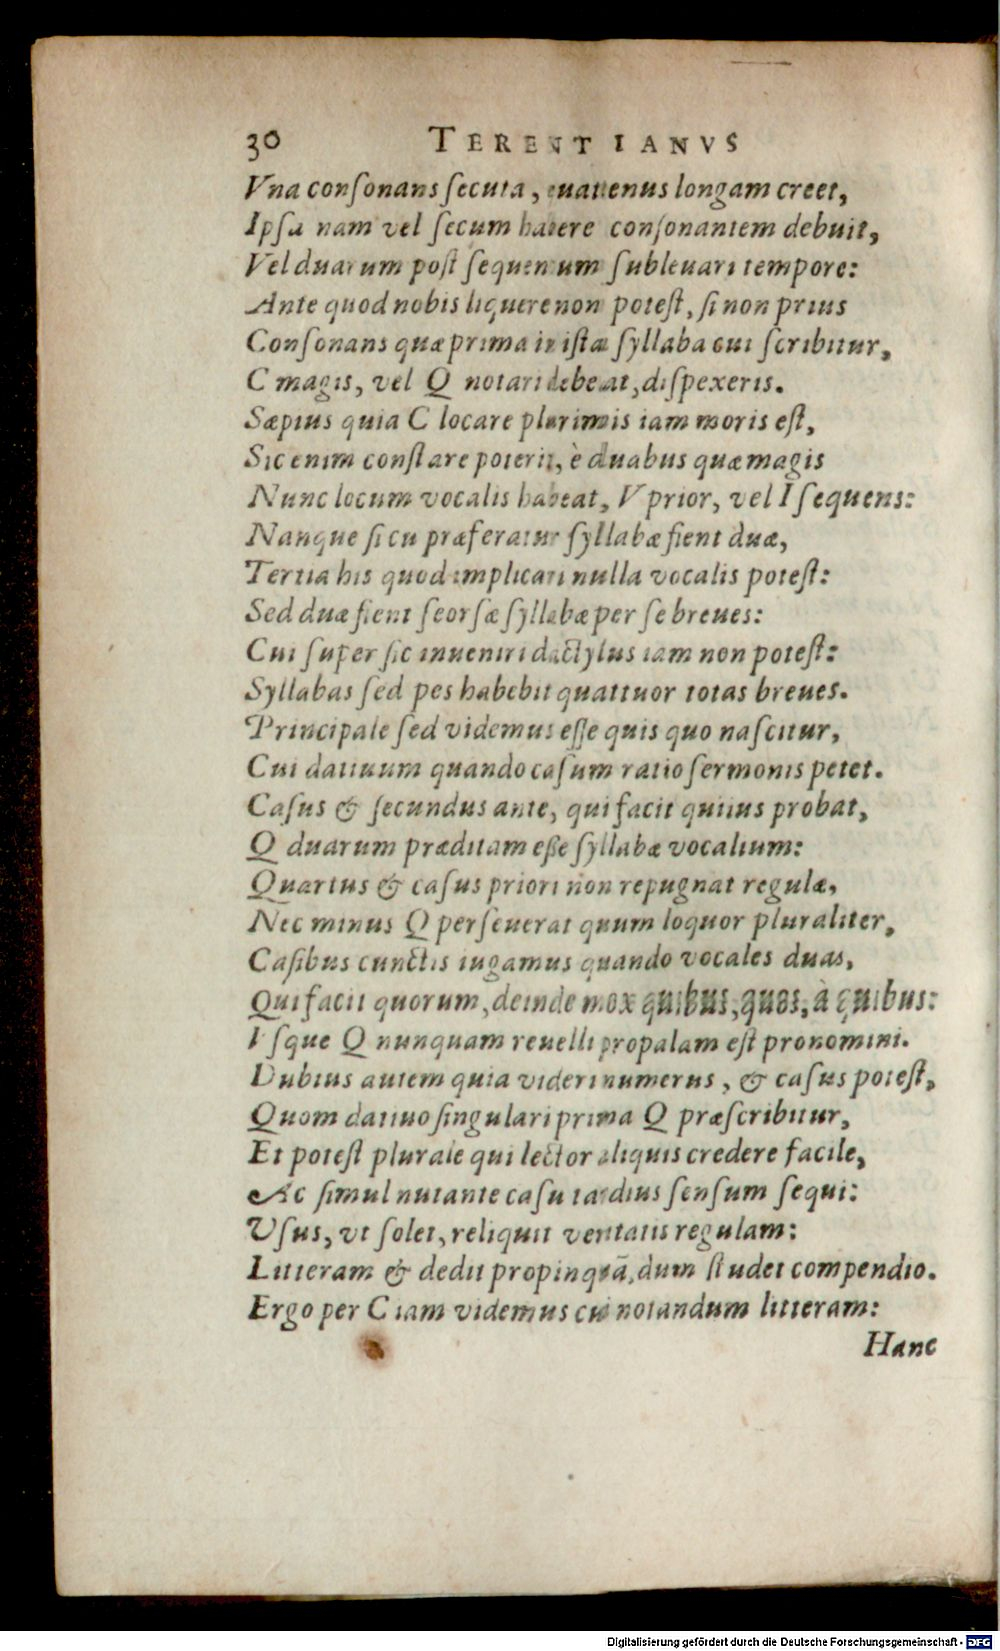 30 TERENTIANVS
Vna conſonans ſecuta, quatenus longam creet,
Ipſa nam vel ſecum habere conſonantem debuit,
Vel duarum poſt ſequentum ſubleuari tempore:
Ante quod nobis liquere non poteſt, ſi non prius
Conſonans quæ prima in iſta ſyllaba cui ſcribitur,
C magis, vel Q notari debeat, diſpexeris.
Sæpius quia C locare plurimis iam moris eſt,
Sic enim conſtare poterit, è duabus quæ magis
Nunc locum vocalis habeat, V prior, vel I ſequens:
Nanque ſi cu præferatur ſyllabæ fient duæ,
Tertia his quod implicari nulla vocalis poteſt:
Sed duæ fient ſeorſæ ſyllabæ per ſe breues:
Cui ſuper ſic inueniri dactylus iam non poteſt:
Syllabas ſed pes habebit quattuor totas breues.
Principale ſed videmus eſſe quis quo naſcitur,
Cui datiuum quando caſum ratio ſermonis petet.
Caſus & ſecundus ante, qui facit quiius probat,
Q duarum præditam eße ſyllabæ vocalium:
Quartus & caſus priori non repugnat regulæ,
Nec minus Q perſeuerat quum loquor pluraliter,
Caſibus cunctis iugamus quando vocales duas,
Qui facit quorum, deinde mox quibus, quos, à quibus:
Vſque Q nunquam reuelli propalam eſt pronomini.
Dubius autem quia videri numerus, & caſus poteſt,
Quom datiuo ſingulari prima Q præſcribitur,
Et poteſt plurale qui lector aliquis credere facile,
Ac ſimul nutante caſu tardius ſenſum ſequi:
Vſus, vt ſolet, reliquit veritatis regulam:
Litteram & dedit propinquā, dum ſtudet compendio.
Ergo per C iam videmus cui notandum litteram:
Hanc
Digitalisierung gefördert durch die Deutsche Forschungsgemeinschaft - DFG